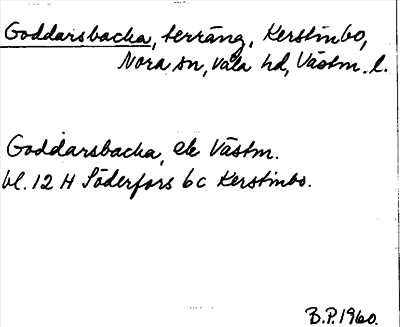 Goddarsbacka, terräng, Kerstinbo,
Nora sn, Våla hd, Västm. l.
Goddarsbacka, ek Västm.
bl. 12 H Söderfors 6c Kerstinbo.
B.P. 1960.